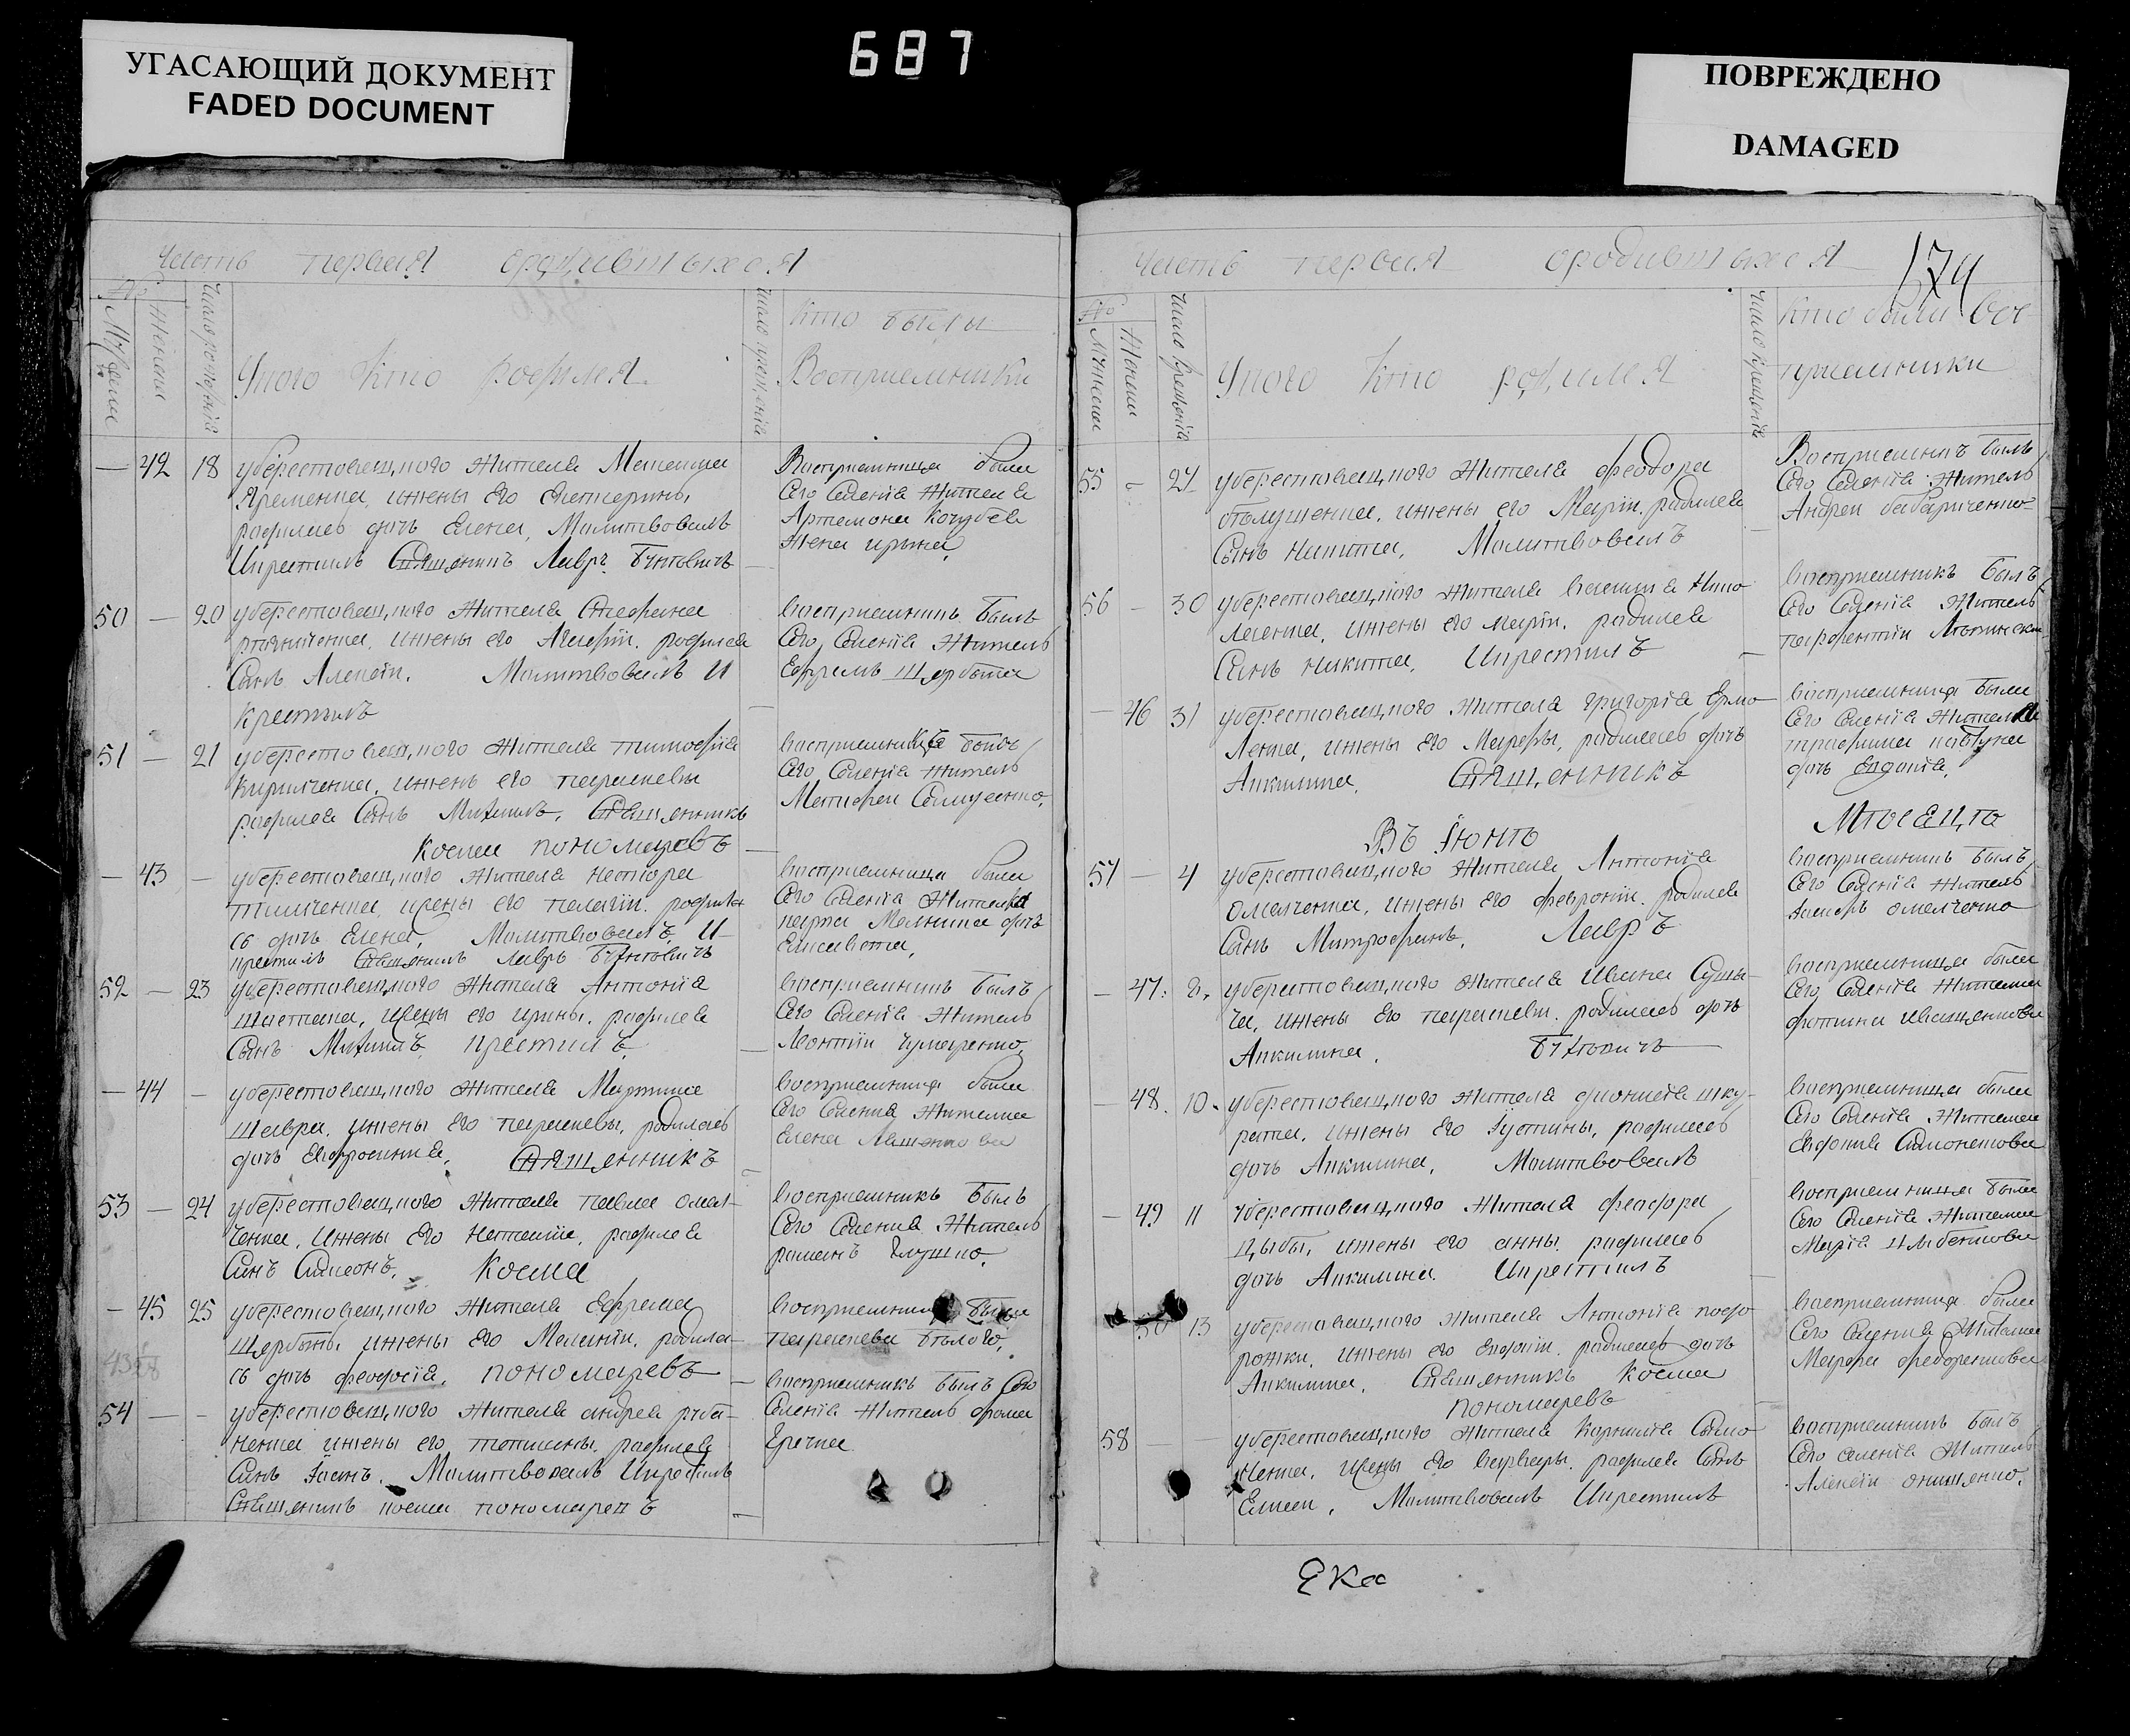 УГАСАЮЩИЙ ДОКУМЕНТ
FADED DOCUMENT
687
ПОВРЕЖДЕНО
DAMAGED
Часть первая
№
Женска
Число рождения
Укого кто родился
кто были
Восприемники
42 18 уберестовецкого жителя
Яременка, ижены его Екатерины
родилась дочь Елена, Молитвовалъ
Икрестилъ Священикъ Лавръ Бунтовичъ
Восприемница была
Сего Селенія жителя
Артемона Кочубея
жена ирына
50 — 20 уберестовецкого жителя Стефана
ижены его родился
Сынъ Алексій. Молитвовалъ И
крестилъ
восприемникъ былъ
Сего Селенія Житель
Ефремъ Щербата
51 — 21 уберестовецкого жителя тимофія
Кириченка, ижены его параскевы
родился Сынъ Михаилъ. Священикъ
Косма пономаревъ
Сего Селенія житель
Матфей
— 43 — уберестовецкого жителя нестора
ижены его пелагіи. родила
сь дочь Елена, Молитвовалъ И
крестилъ Священикъ Лавръ Бунтовичъ
восприемница была
Сего Селенія жителя
карпа Мельника дочь
Елисавета,
52 — 23 уберестовецкого жителя Антонія
Шастака, ижены его ирины. родился
Сынъ Михаилъ крестилъ
восприемникъ былъ
Сего Селенія Житель
Леонтій
— 44 — уберестовецкого жителя Мартина
Шавра, ижены его параскевы, родилась
дочь Евфросинія, Священникъ
восприемница была
Сего Селенія жителка
Елена
53 — 24 уберестовецкого жителя павла омел-
ченка, ижены его Наталіи, родился
Синъ Симеонъ, Косма
восприемникъ былъ
Сего Селенія Житель
романъ Глушко,
— 45 25 уберестовецкого жителя Ефрема
Щербаты ижены его Меланіи, родила-
сь дочь феодосія, пономаревъ
восприемница была
параскева бѣлого,
54 — — уберестовецкого жителя андрея руба-
ненка ижены его татианы. родился
Синъ Іоанъ. Молитвовалъ Икрестилъ
Священикъ косма пономаревъ
восприемникъ былъ Сего
Селенія житель фома
Часть первая
№
Женски
Число крещенія
Укого кто родился
кто были вос
приемники
55 уберестовецкого жителя феодора
ижены его Маріи. родился
Сынъ никита, Молитвовалъ
Восприемникъ былъ
Сего Селенія житель
Андрей
56 — 30 уберестовецкого жителя василія Нико
лаенка, ижены его маріи. родился
Сынъ никита, Икрестилъ
восприемникъ былъ
Сего Селенія Житель
парфентій
— 46 31 уберестовецкого жителя григорія Ермо
ленка, ижены его Марфы, родилась дочь
Акилина, Священникъ
восприемница была
Сего Селенія жителя
трофима
дочь Евдокія,
Въ Іюнѣ Мѣсецѣ
57 — 4 уберестовецкого жителя Антонія
омелченка, ижены его февроніи. родился
Сынъ Митрофанъ, Лавръ
восприемникъ былъ
Сего Селенія житель
омелченко
— 47. 8. уберестовецкого жителя Ивана
ижены его параскеви. родилась дочь
Акилина, Бунтовичъ
восприемница была
Сего Селенія жителка
фотина иващенкова
— 48. 10. уберестовецкого жителя діонисія шку-
рата, ижены его Іустины, родилась
дочь Акилина, Молитвовалъ
восприемница была
Сего Селенія жителка
Евдокія
— 49 11 уберестовецкого жителя феодора
Цыбы, ижены его анны. родилась
дочь Акилина. Икрестилъ
восприемница была
Сего Селенія жителка
Марія
50 13 уберестовецкого жителя Антонія подо
рожки, ижены его Евдокіи. родилась дочь
Акилина, Священникъ Косма
пономаревъ
восприемница была
Сего Селенія Жителка
Марфа федоренкова
58 — уберестовецкого жителя Корнилія Само
ненка, ижены его варвары. родился Сынъ
Елисей, Молитвовалъ Икрестилъ
восприемникъ былъ
Сего селенія житель
Алексій онищенко.
Ека